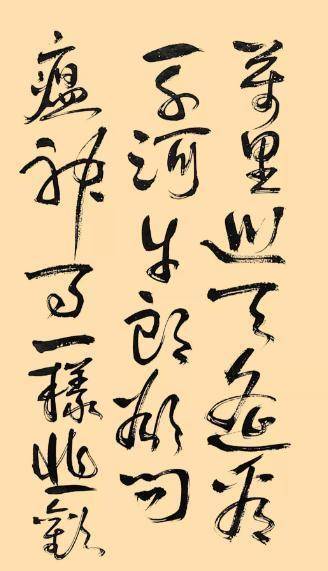 萬里巡天遥看
一千河牛郎欲問
瘟神事一樣悲歡